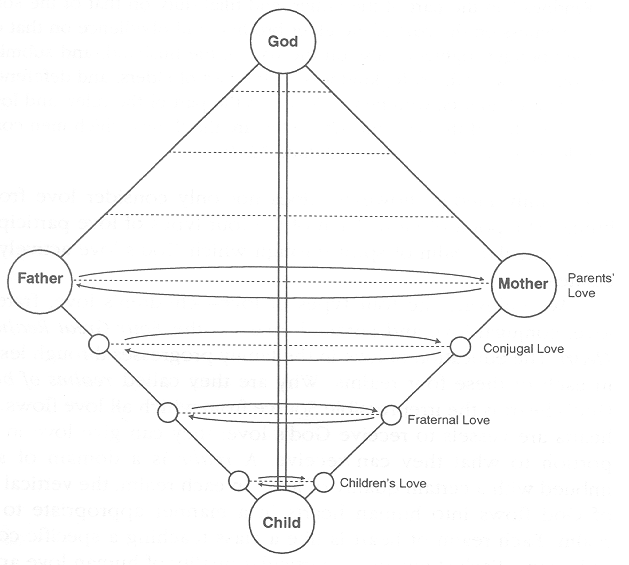 God
Father
Mother
Parents'
Love
Conjugal Love
Fraternal Love
Children's Love
Child